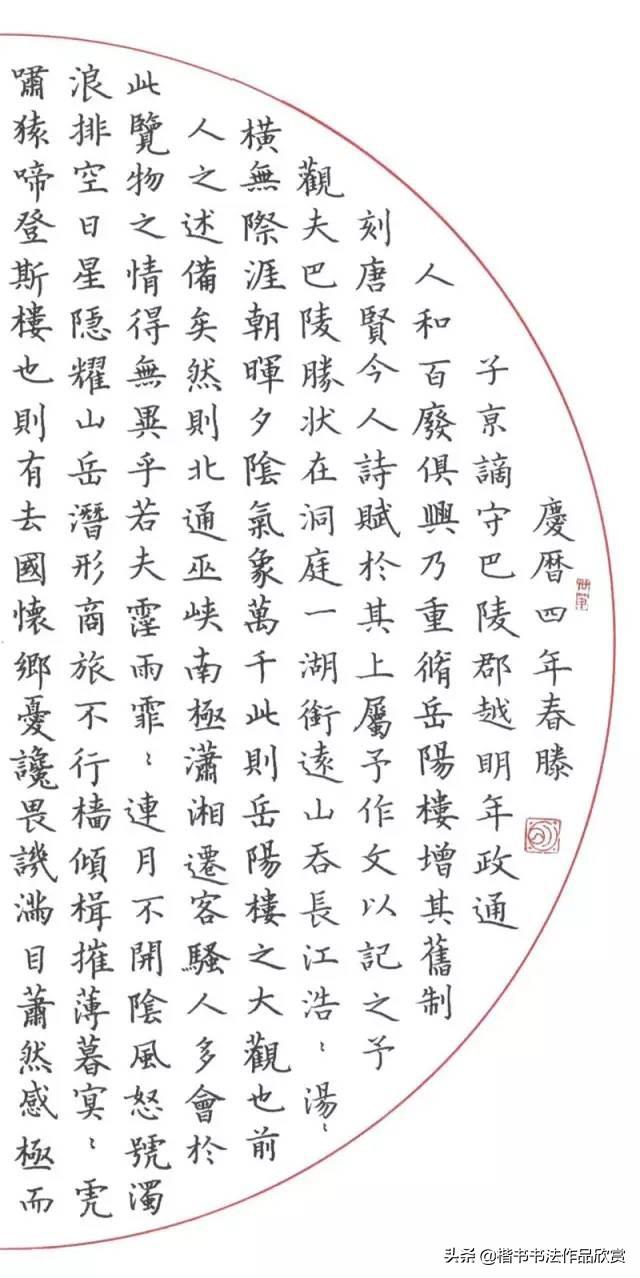 慶暦四年春滕
子亰謫守巴陵郡越明年政通
人和百廢俱興乃重脩岳陽樓增其舊制
刻唐賢今人詩賦於其上屬予作文以記之予
觀夫巴陵勝狀在洞庭一湖銜遠山吞長江浩〻湯〻
橫無際涯朝暉夕陰氣象萬千此則岳陽樓之大觀也前
人之述備矣然則北通巫峽南極瀟湘遷客騷人多會於
此覽物之情得無異乎若夫霪雨霏〻連月不開陰風怒號濁
浪排空日星隱耀山岳潛形商旅不行檣傾楫摧薄暮冥〻虎
嘯猿啼登斯樓也則有去國懷鄉憂讒畏譏滿目蕭然感極而
头条 @楷书书法作品欣赏